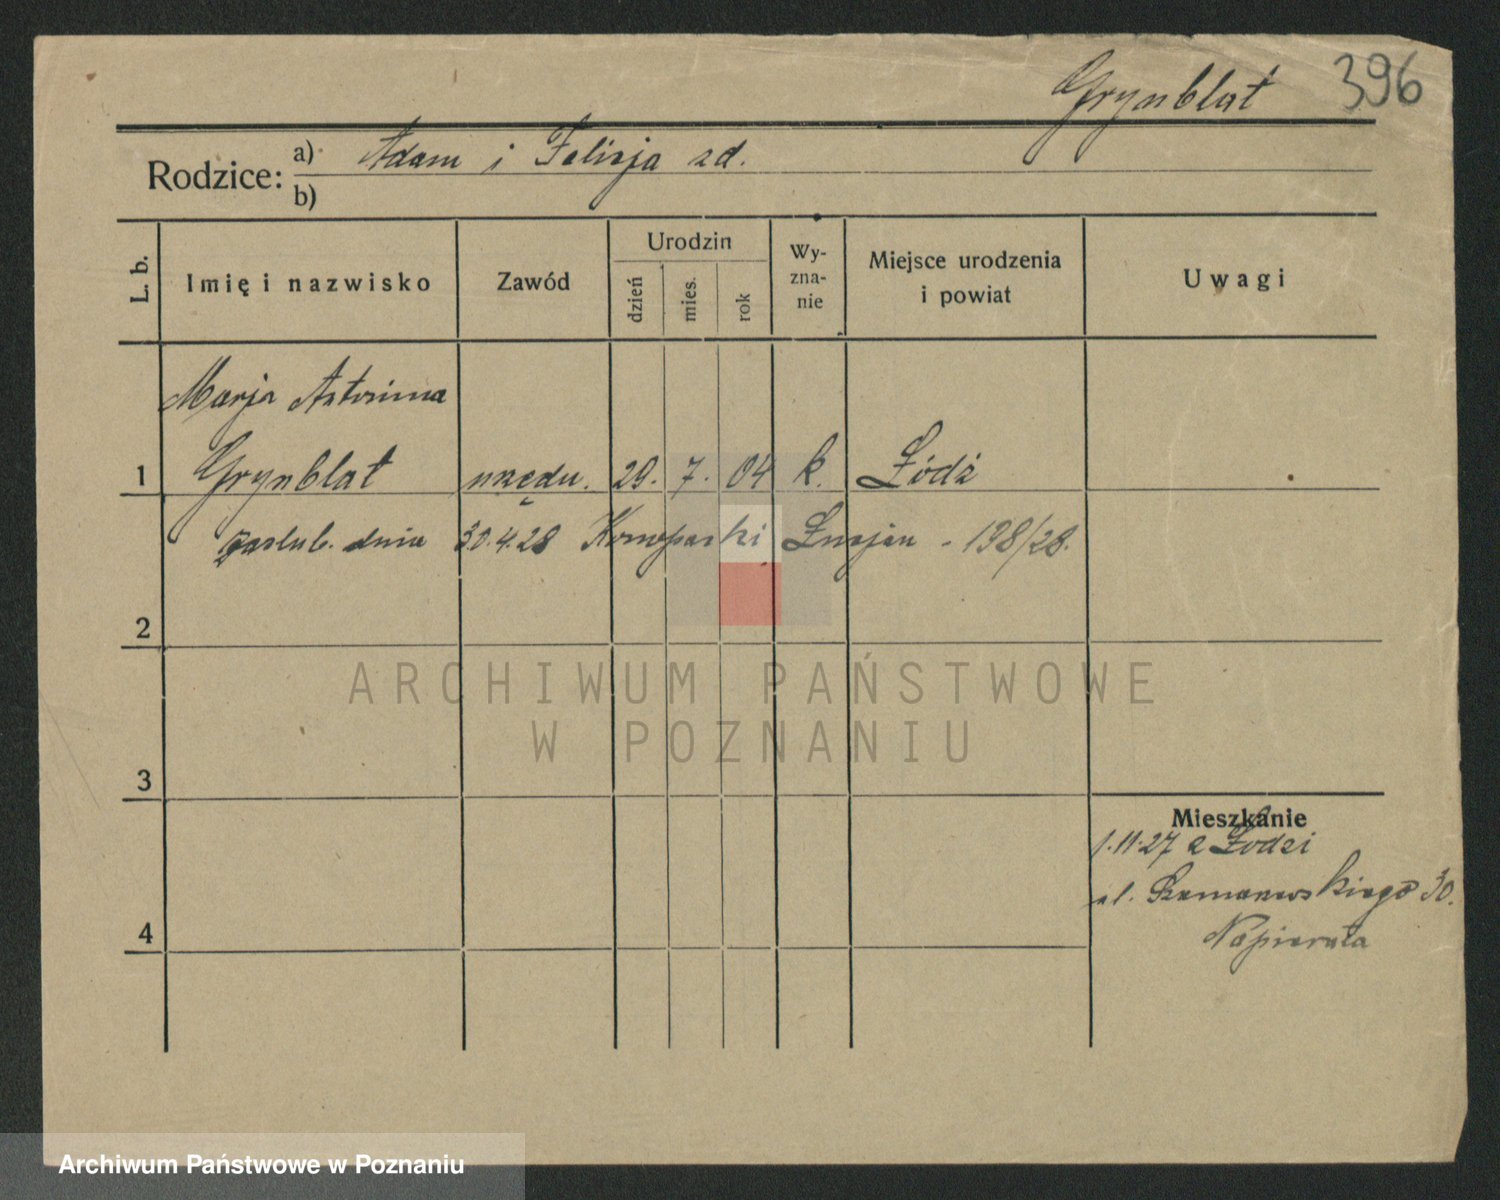 Grynblat 396
Rodzice: a) Adam i Felicja zd.
b)
L. b. Imię i nazwisko Zawód Urodzin dzień mies. rok Wy-zna-nie Miejsce urodzenia i powiat Uwagi
Marja Antonina
1 Grynblat urzędn. 29. 7. 04 k. Łódź
zaślub. dnia 30.4.28 Konopacki Lucjan - 198/28.
2
ARCHIWUM PAŃSTWOWE
W POZNANIU
3
Mieszkanie
1.11.27 z Łodzi
ul. Szamarzewskiego 30.
4
Napierała
Archiwum Państwowe w Poznaniu